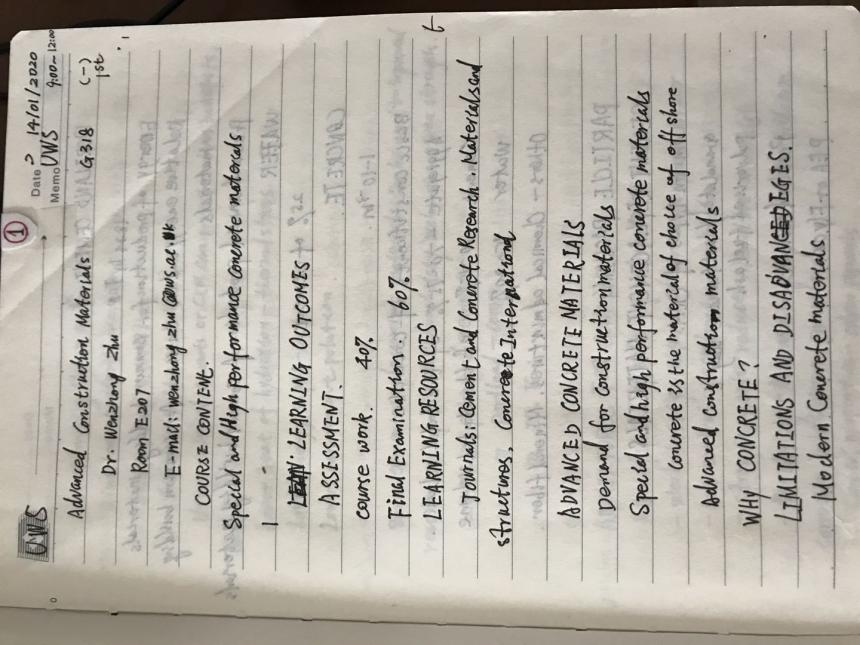 ①
UWS
Date 14/01/2020
Memo UWS 9:00-12:00
Advanced Construction Materials G318 (一) 1st
Dr. Wenzhong Zhu
Room E207
E-mail: wenzhong.zhu@uws.ac.uk
COURSE CONTENT.
Special and High performance concrete materials
LEARNING OUTCOMES
ASSESSMENT.
course work. 40%
Final Examination. 60%
LEARNING RESOURCES
Journals: Cement and Concrete Research. Materials and
structures, Concrete International
ADVANCED CONCRETE MATERIALS
Demand for construction materials
Special and high performance concrete materials
concrete is the material of choice of off shore
Advanced construction materials
WHY CONCRETE?
LIMITATIONS AND DISADVANEGES.
Modern Concrete materials